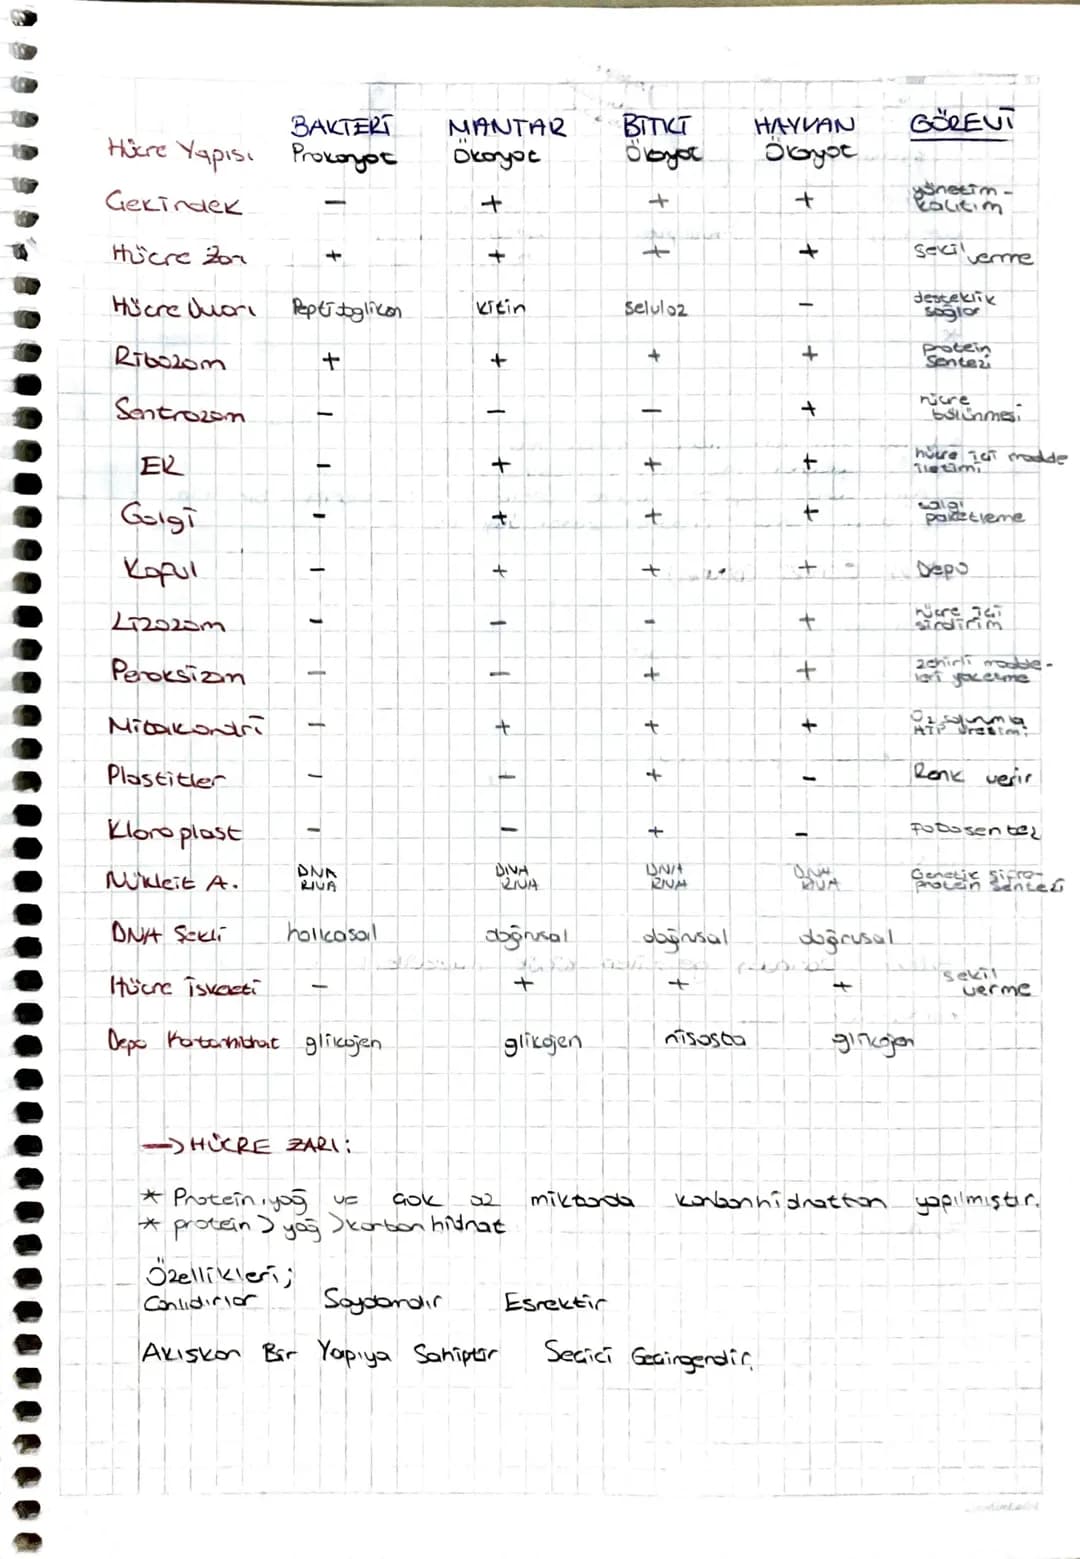 BAKTERİ MANTAR BİTKİ HAYVAN GÖREVİ
Hücre Yapısı Prokaryot Ökaryot Ökaryot Ökaryot
Çekirdek − + + + yönetim - kalıtım
Hücre Zarı + + + + şekil verme
Hücre Duvarı Peptidoglikan kitin selüloz − desteklik sağlar
Ribozom + + + + protein sentezi
Sentrozom − − − + hücre bölünmesi
ER − + + + hücre içi madde iletimi
Golgi − + + + salgı paketleme
Koful − + + + Depo
Lizozom − − − + hücre içi sindirim
Peroksizom − − + + zehirli maddeleri yoketme
Mitokondri − + + + O₂ solunumla ATP üretimi
Plastitler − − + − Renk verir
Kloroplast − − + − Fotosentez
Nükleik A. DNA RNA DNA RNA DNA RNA DNA RNA Genetik şifre- protein sentezi
DNA Şekli halkasal doğrusal doğrusal doğrusal
Hücre İskeleti − + + + şekil verme
Depo Karbonhidrat glikojen glikojen nişasta glikojen
→ HÜCRE ZARI:
* Protein, yağ ve çok az miktarda karbonhidrattan yapılmıştır.
* protein > yağ > karbonhidrat
Özellikleri;
Canlıdırlar Saydamdır Esnektir
Akışkan Bir Yapıya Sahiptir Seçici Geçirgendir.